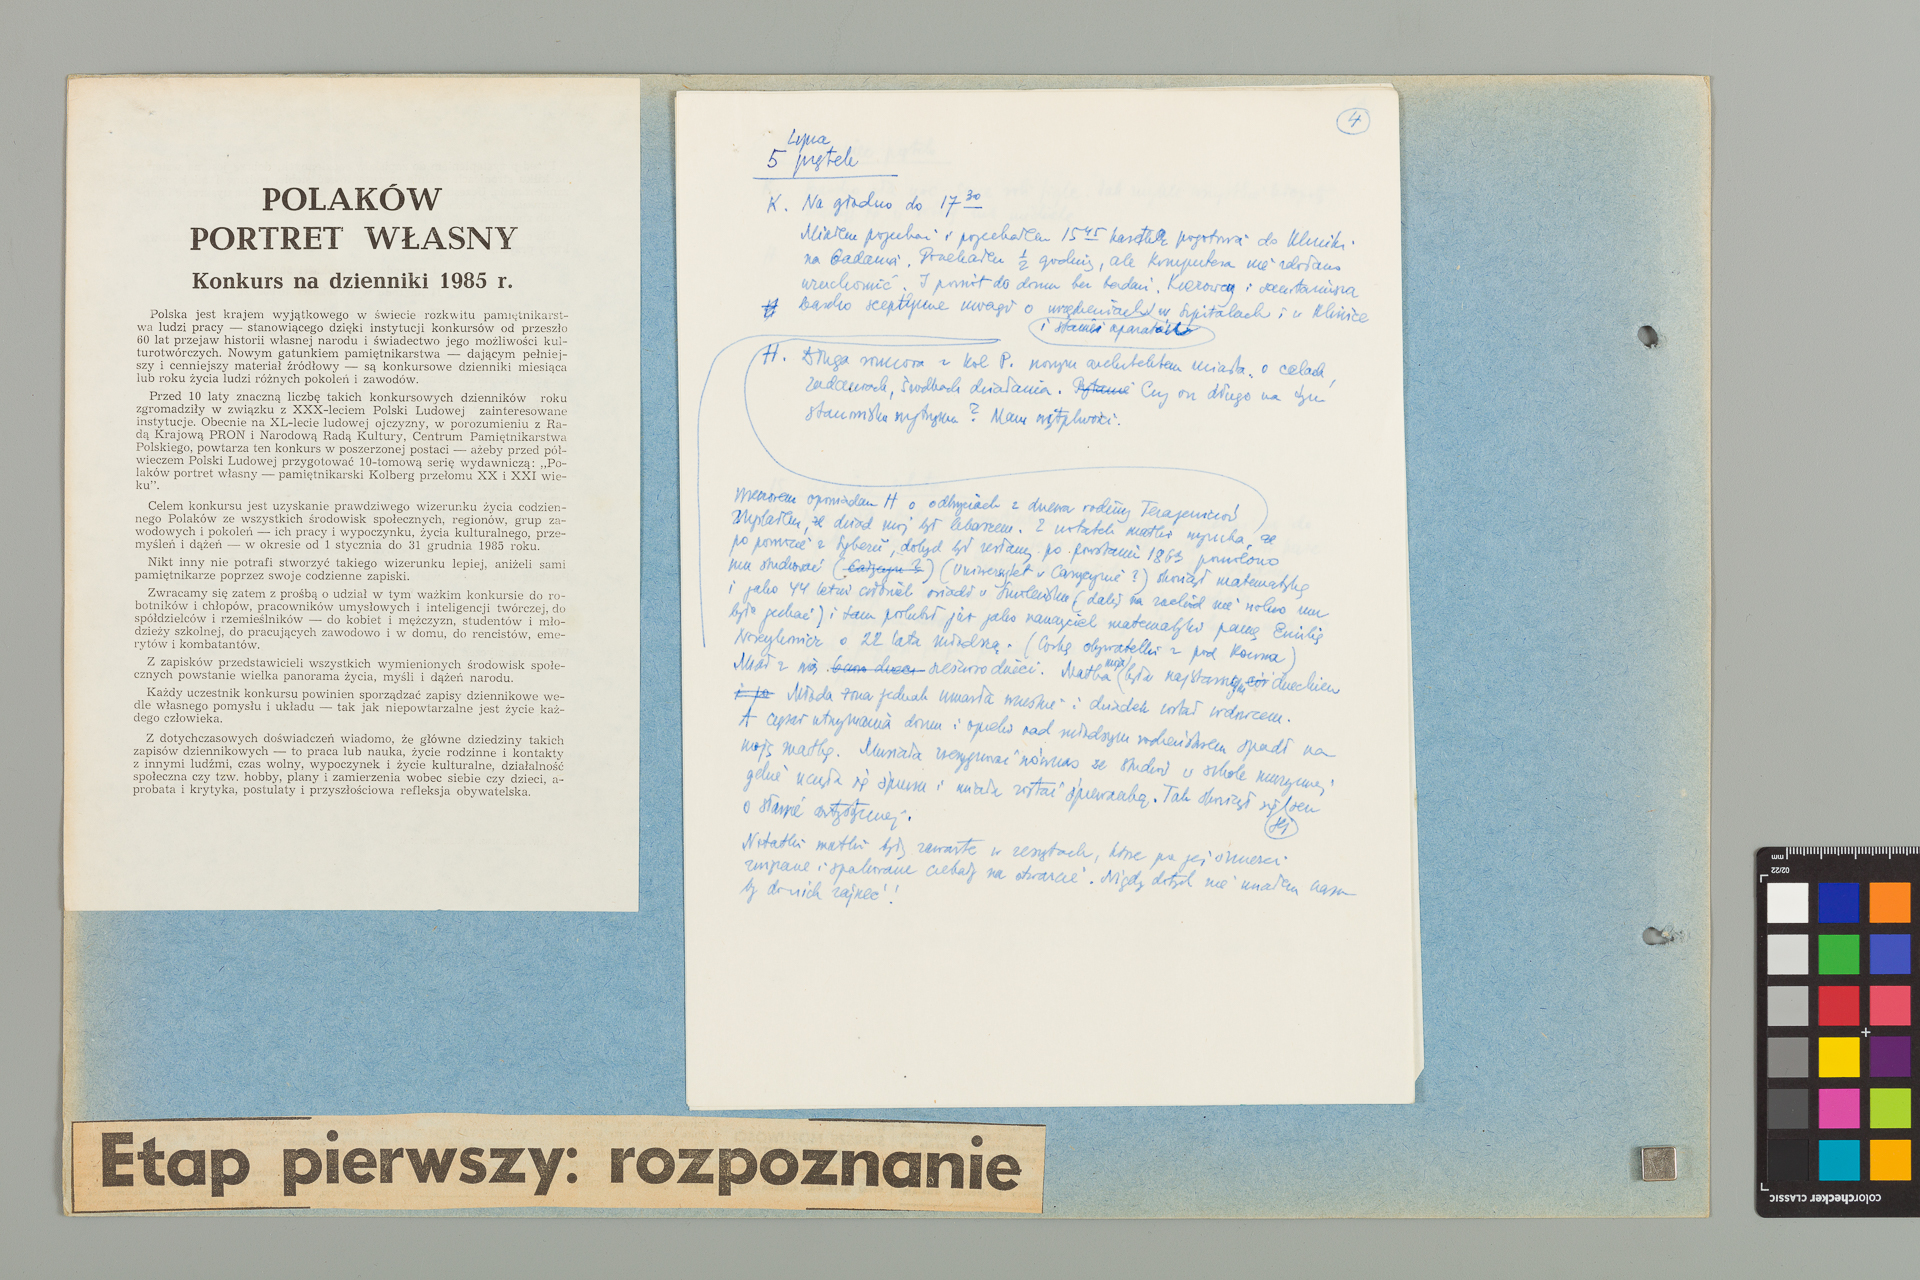 POLAKÓW
PORTRET WŁASNY
Konkurs na dzienniki 1985 r.
Polska jest krajem wyjątkowego w świecie rozkwitu pamiętnikarst-
wa ludzi pracy — stanowiącego dzięki instytucji konkursów od przeszło
60 lat przejaw historii własnej narodu i świadectwo jego możliwości kul-
turotwórczych. Nowym gatunkiem pamiętnikarstwa — dającym pełniej-
szy i cenniejszy materiał źródłowy — są konkursowe dzienniki miesiąca
lub roku życia ludzi różnych pokoleń i zawodów.
Przed 10 laty znaczną liczbę takich konkursowych dzienników roku
zgromadziły w związku z XXX-leciem Polski Ludowej zainteresowane
instytucje. Obecnie na XL-lecie ludowej ojczyzny, w porozumieniu z Ra-
dą Krajową PRON i Narodową Radą Kultury, Centrum Pamiętnikarstwa
Polskiego, powtarza ten konkurs w poszerzonej postaci — ażeby przed pół-
wieczem Polski Ludowej przygotować 10-tomową serię wydawniczą: „Po-
laków portret własny — pamiętnikarski Kolberg przełomu XX i XXI wie-
ku”.
Celem konkursu jest uzyskanie prawdziwego wizerunku życia codzien-
nego Polaków ze wszystkich środowisk społecznych, regionów, grup za-
wodowych i pokoleń — ich pracy i wypoczynku, życia kulturalnego, prze-
myśleń i dążeń — w okresie od 1 stycznia do 31 grudnia 1985 roku.
Nikt inny nie potrafi stworzyć takiego wizerunku lepiej, aniżeli sami
pamiętnikarze poprzez swoje codzienne zapiski.
Zwracamy się zatem z prośbą o udział w tym ważkim konkursie do ro-
botników i chłopów, pracowników umysłowych i inteligencji twórczej, do
spółdzielców i rzemieślników — do kobiet i mężczyzn, studentów i mło-
dzieży szkolnej, do pracujących zawodowo i w domu, do rencistów, eme-
rytów i kombatantów.
Z zapisków przedstawicieli wszystkich wymienionych środowisk społe-
cznych powstanie wielka panorama życia, myśli i dążeń narodu.
Każdy uczestnik konkursu powinien sporządzać zapisy dziennikowe we-
dle własnego pomysłu i układu — tak jak niepowtarzalne jest życie każ-
dego człowieka.
Z dotychczasowych doświadczeń wiadomo, że główne dziedziny takich
zapisów dziennikowych — to praca lub nauka, życie rodzinne i kontakty
z innymi ludźmi, czas wolny, wypoczynek i życie kulturalne, działalność
społeczna czy tzw. hobby, plany i zamierzenia wobec siebie czy dzieci, a-
probata i krytyka, postulaty i przyszłościowa refleksja obywatelska.
4
Lipca
5 piątek
K. Na głodno do 17 30
Miałem pojechać i pojechałem 15 45 karetką pogotowia do Kliniki
na badania. Czekałem 1/2 godziny, ale komputera nie zdołano
uruchomić. I powrót do domu bez badań. Kierowcy i sanitariusza
bardzo sceptyczne uwagi o urządzeniach w szpitalach i w Klinice
i stanie aparatów
H. Długa rozmowa z kol P. nowym architektem miasta, o celach,
zadaniach, środkach działania. Pytanie Czy on długo na tym
stanowisku wytrzyma? Mam wątpliwości.
Wieczorem opowiadam H o odkryciach z drzewa rodziny
Myślałem, że dziad mój był lekarzem. Z notatek matki wynika, że
po powrocie z Syberii, dokąd był zesłany po powstaniu 1863 pozwolono
mu studiować (Uniwersytet w Carycynie?) skończył matematykę
i jako 44 letni człowiek osiadł w Smoleńsku (dalej na zachód nie wolno mu
było jechać) i tam poślubił już jako nauczyciel matematyki panią Emilię
o 22 lata młodszą. (Córkę obywatelki z pod Kowna)
Miał z nią sześcioro dzieci. Matka moja była najstarszym dzieckiem
Młoda żona jednak umarła wcześnie i dziadek został wdowcem.
A ciężar utrzymania domu i opieki nad młodszym rodzeństwem spadł na
moją matkę. Musiała zrezygnować równocz ze studiów w szkole muzycznej
gdzie uczyła się śpiewu i miała zostać śpiewaczką. Tak skończył się sen
o sławie artystycznej.
Notatki matki były zawarte w zeszytach, które po jej śmierci
i spakowane czekały na otwarcie. Nigdy dotąd nie miałem czasu
by do nich zajrzeć!
Etap pierwszy: rozpoznanie
mm
03/22
colorchecker CLASSIC